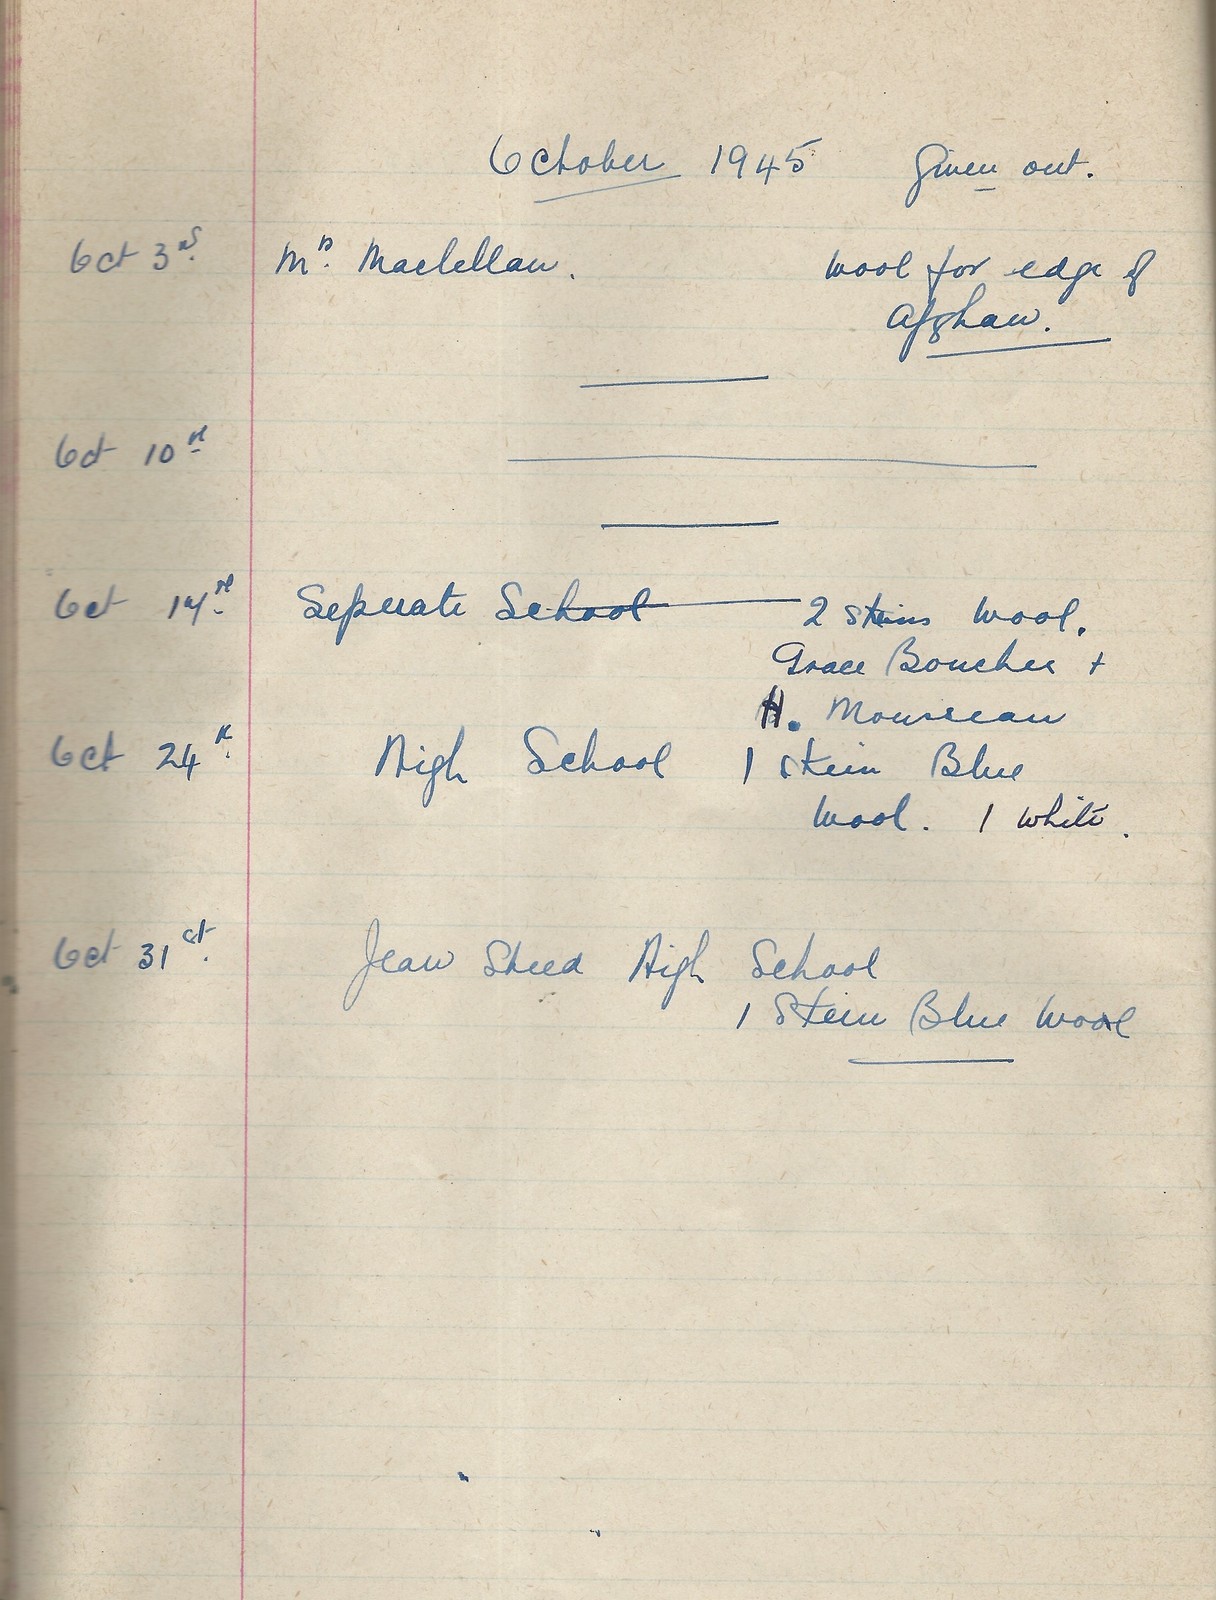 October 1945 Given out.
Oct 3rd. Mrs. Maclellan. Wool for edge of
Afghan.
Oct 10th
Oct 17th. Seperate School 2 Skeins Wool.
Grace Boucher +
H. Mousseau
Oct 24th. High School 1 Skein Blue
Wool. 1 White.
Oct 31st. Jean Steed High School
1 Skein Blue Wool